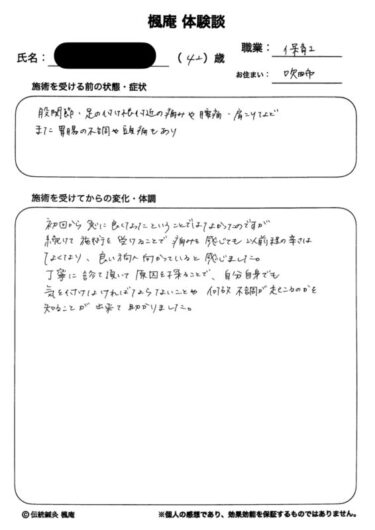 楓庵 体験談
氏名： （42）歳
職業： 保育士
お住まい： 吹田市
施術を受ける前の状態・症状
股関節・足の付け根付近の痛みや腰痛・肩こりなど
また胃腸の不調や頭痛もあり
施術を受けてからの変化・体調
初回から急に良くなったということではなかったのですが
続けて施術を受けることで痛みを感じても以前程の辛さは
なくなり、良い方向へ向かっていると感じました。
丁寧に診て頂いて原因を探ることで、自分自身でも
気を付けなければならないことや 何故不調が起こるのかを
知ることが出来て助かりました。
© 伝統鍼灸 楓庵
※個人の感想であり、効果効能を保証するものではありません。